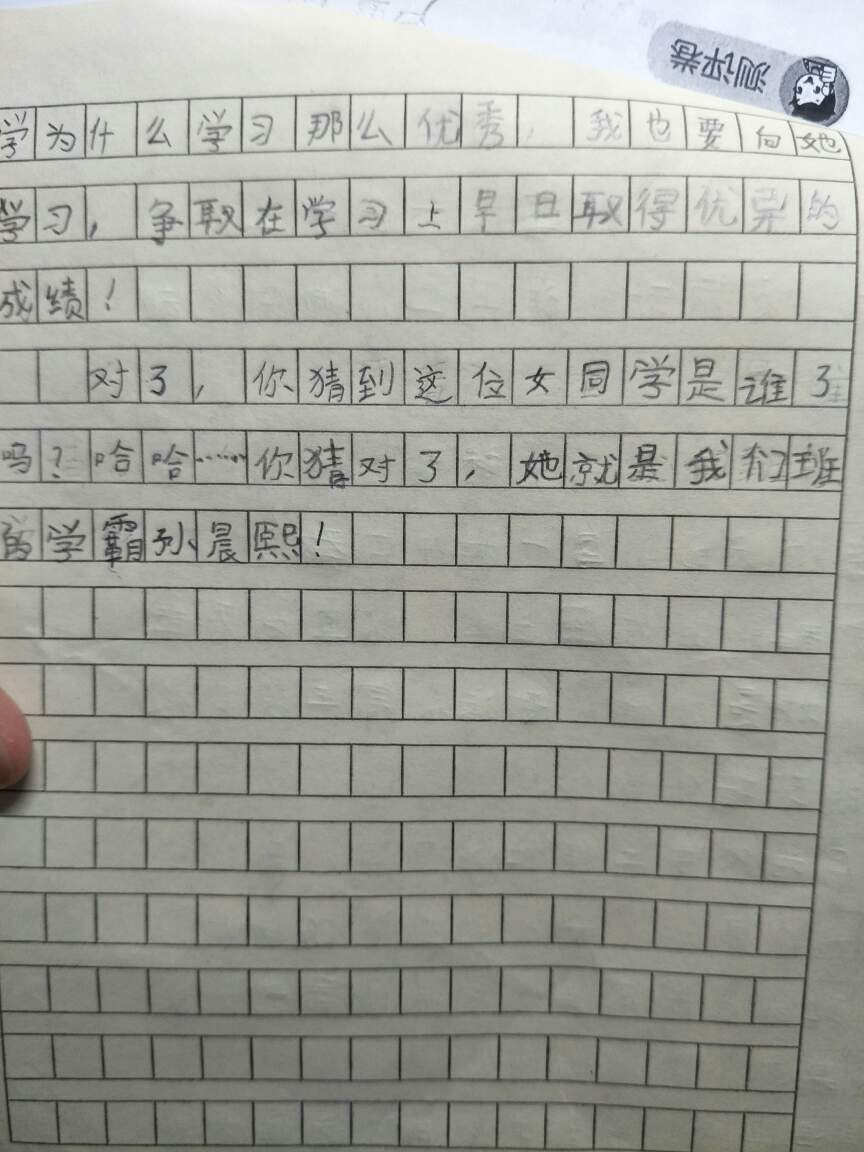 测评卷
学为什么学习那么优秀，我也要向她
学习，争取在学习上早日取得优异的
成绩！
对了，你猜到这位女同学是谁了
吗？哈哈……你猜对了，她就是我们班
的学霸孙晨熙！